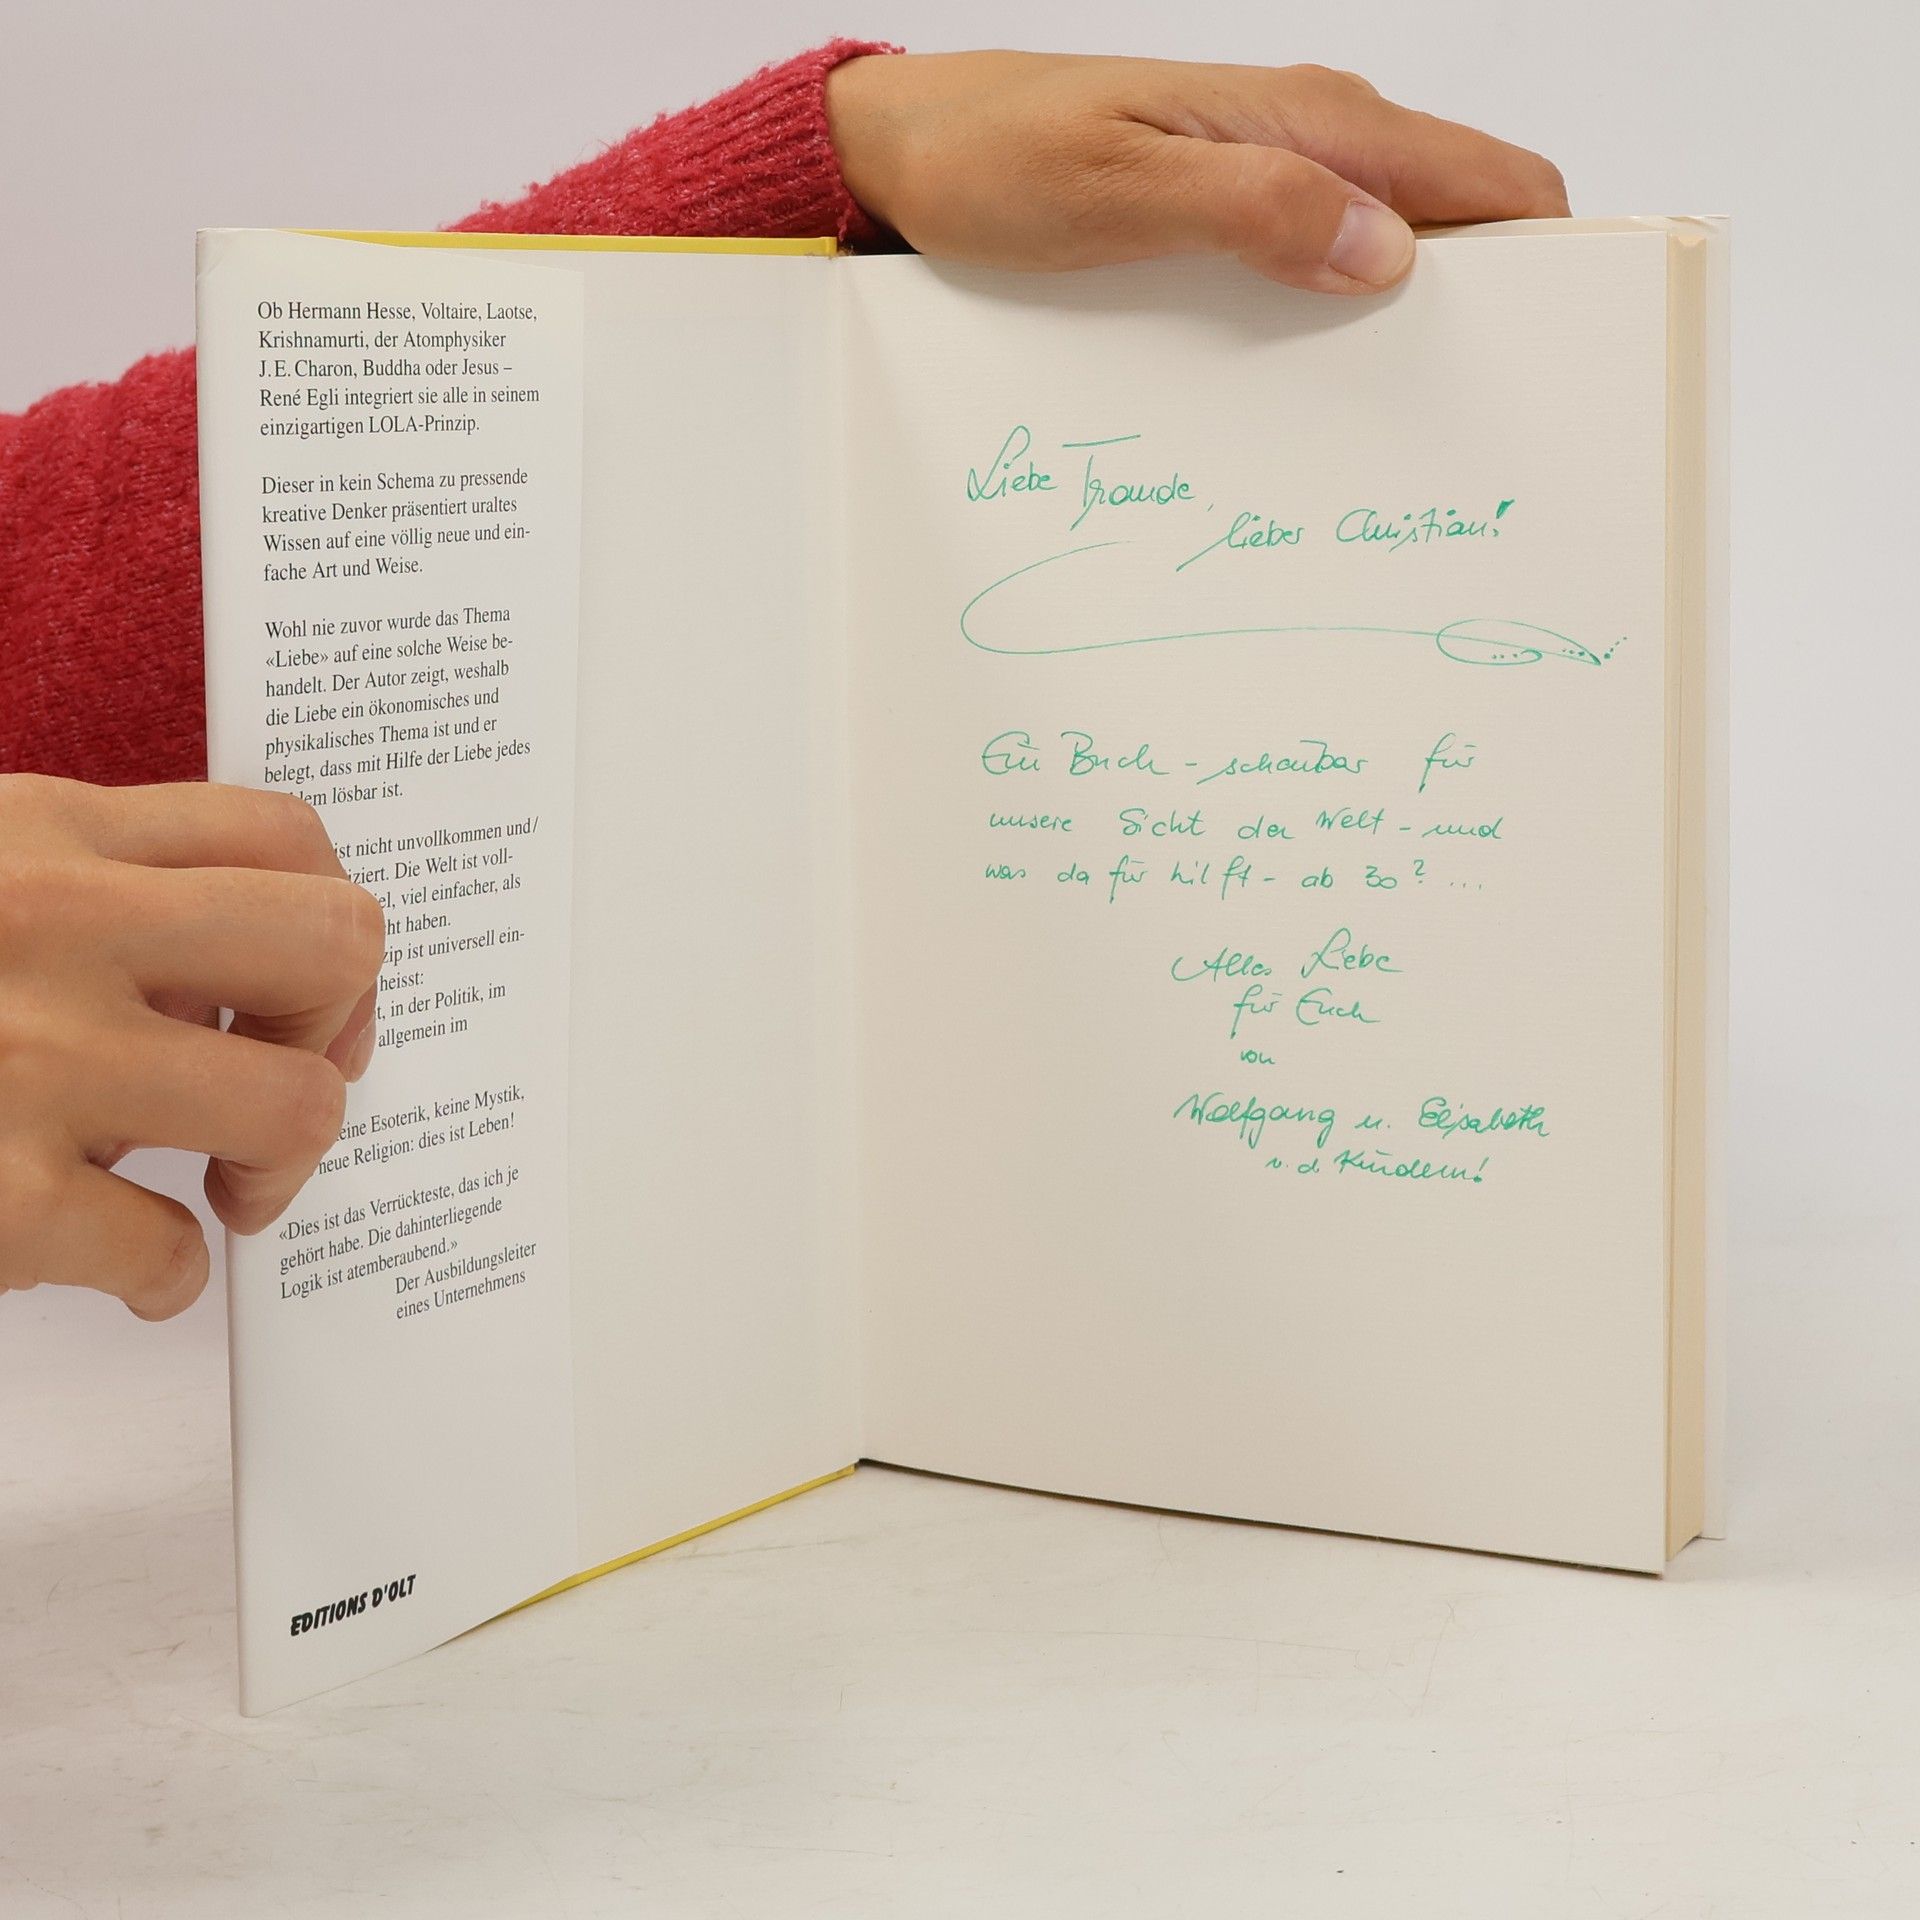 Ob Hermann Hesse, Voltaire, Laotse,
Krishnamurti, der Atomphysiker
J.E. Charon, Buddha oder Jesus –
René Egli integriert sie alle in seinem
einzigartigen LOLA-Prinzip.
Dieser in kein Schema zu pressende
kreative Denker präsentiert uraltes
Wissen auf eine völlig neue und ein-
fache Art und Weise.
Wohl nie zuvor wurde das Thema
«Liebe» auf eine solche Weise be-
handelt. Der Autor zeigt, weshalb
die Liebe ein ökonomisches und
physikalisches Thema ist und er
belegt, dass mit Hilfe der Liebe jedes
lem lösbar ist.
ist nicht unvollkommen und/
iziert. Die Welt ist voll-
el, viel einfacher, als
ht haben.
zip ist universell ein-
heisst:
t, in der Politik, im
allgemein im
eine Esoterik, keine Mystik,
neue Religion: dies ist Leben!
«Dies ist das Verrückteste, das ich je
gehört habe. Die dahinterliegende
Logik ist atemberaubend.»
Der Ausbildungsleiter
eines Unternehmens
EDITIONS D'OLT
Liebe Traude,
lieber Christian!
Ein Buch - schaubar für
unsere Sicht der Welt - und
was da für hilft - ab 30? ...
Alles Liebe
für Euch
von
Wolfgang u. Elisabeth
u. d. Kindern!